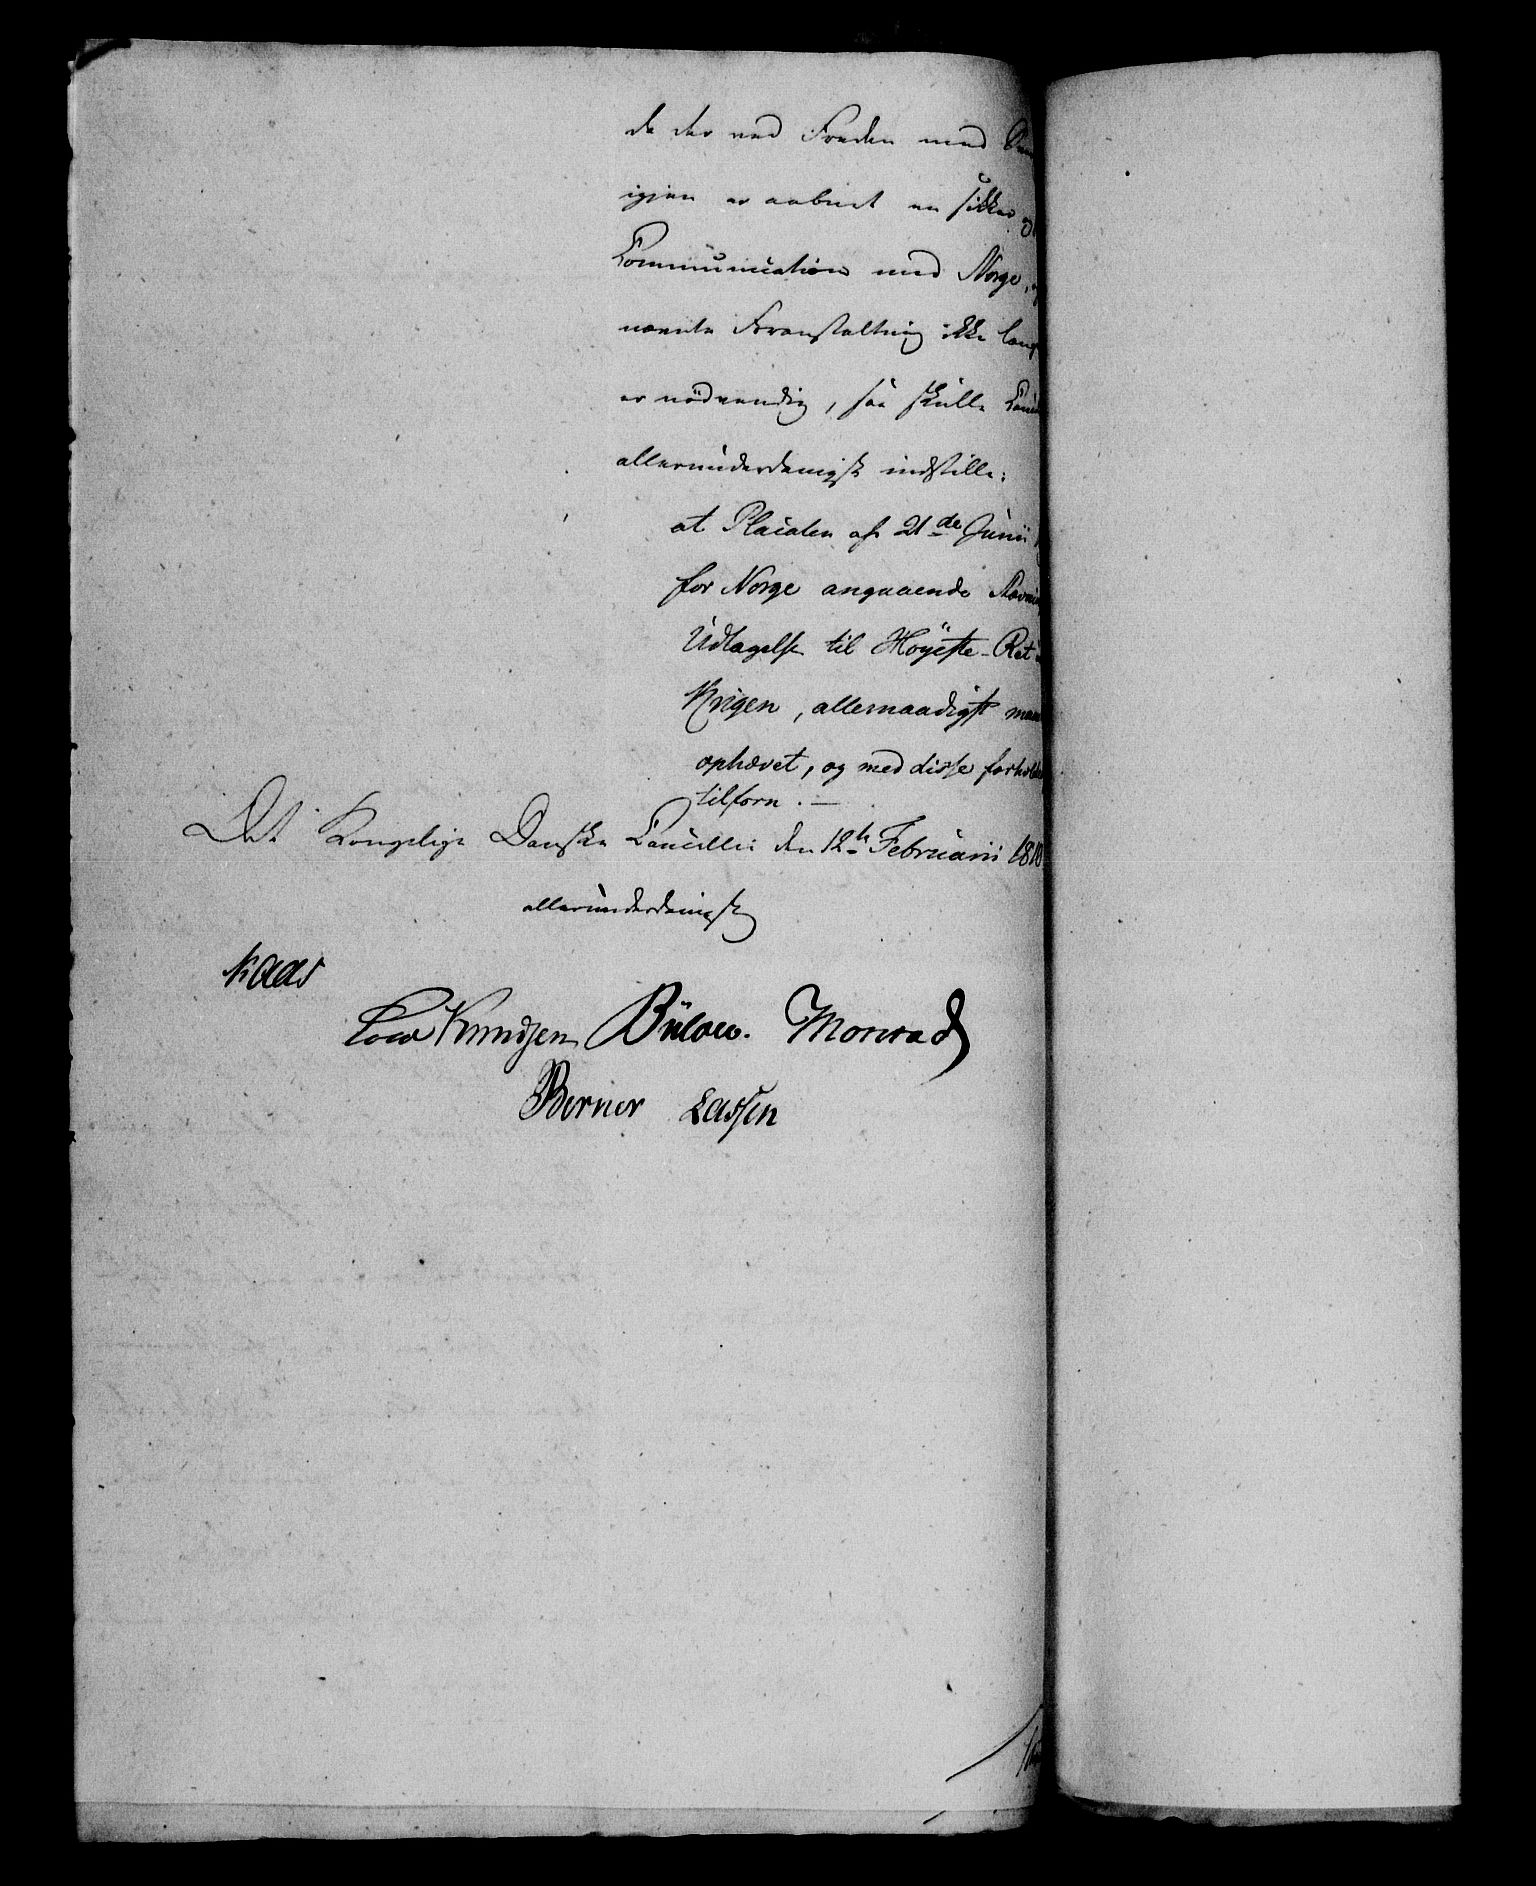 da der ved Freden med
igjen er aabnet en sikker
Communication med Norge,
nævnte Foranstaltning ikke læng
er nödvendig, saa skulle Canc
allerunderdanigst indstille:
at Placaten af 21de Junii
for Norge angaaende
Udtagelse til Höyeste-Ret
Krigen, allernaadigst maa
ophævet, og med disse forhold
tilforn. —
Det Kongelige Danske Cancellie den 12te Februarii 1810
allerunderdanigst
Kaas
Cold Knudsen Bülow. Monrad
Berner Lassen